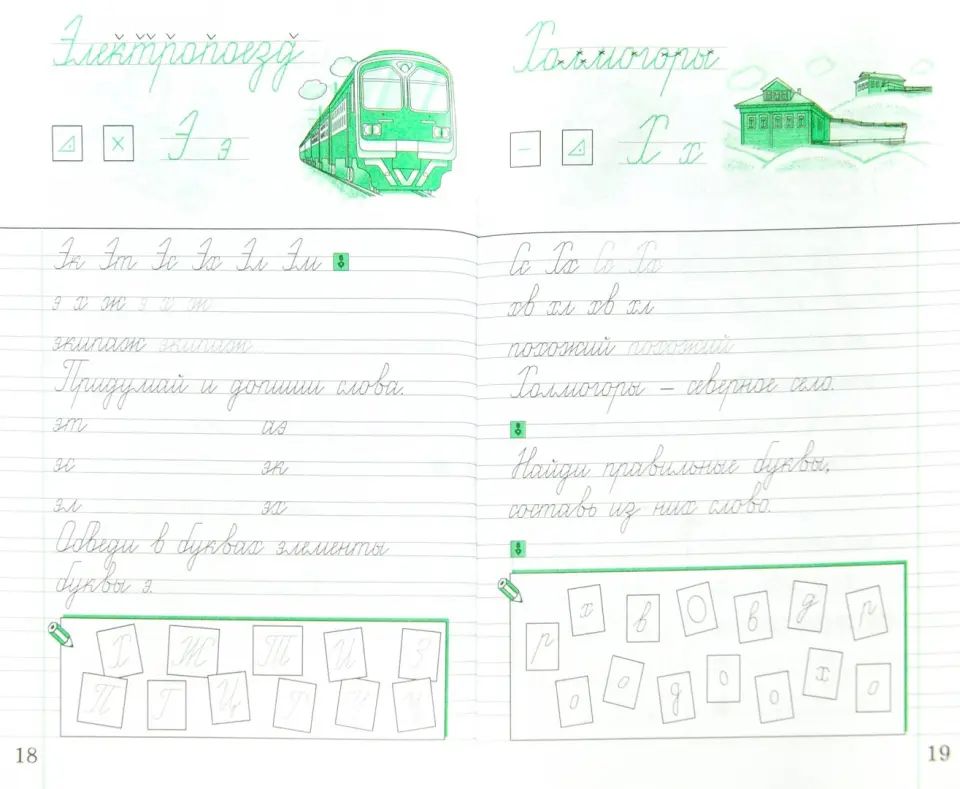 Электропоезд
Э э
Эк Эт Эс Эх Эл Эм
э х ж э х ж
экипаж экипаж
Придумай и допиши слова.
эт аэ
эс эк
эл эх
Обведи в буквах элементы
буквы э.
Х Ж Т И З
П Г Ц Г
18
Холмогоры
Х х
Сс Хх Сс Хх
хв хл хв хл
похожий похожий
Холмогоры – северное село.
Найди правильные буквы,
составь из них слово.
х в О в д р
р о о д о о х о
19